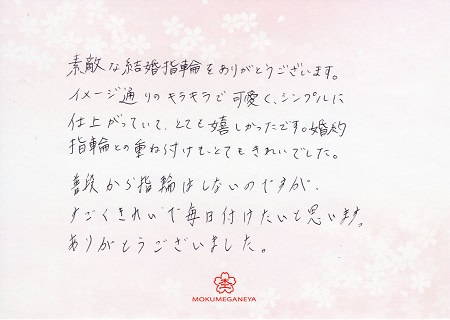 素敵な結婚指輪をありがとうございます。
イメージ通りのキラキラで可愛く、シンプルに
仕上がっていて、とても嬉しかったです。婚約
指輪との重ね付けも、とてもきれいでした。
普段から指輪はしないのですが、
すごくきれいで毎日付けたいと思います。
ありがとうございました。
MOKUMEGANEYA